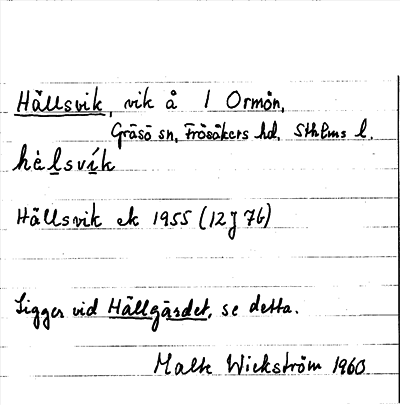 Hällsvik, vik å l Ormön,
Gräsö sn, Frösåkers hd, Sthlms l.
hèlsvík
Hällsvik ek 1955 (12J7b)
Ligger vid Hällgärdet, se detta.
Malte Wickström 1960